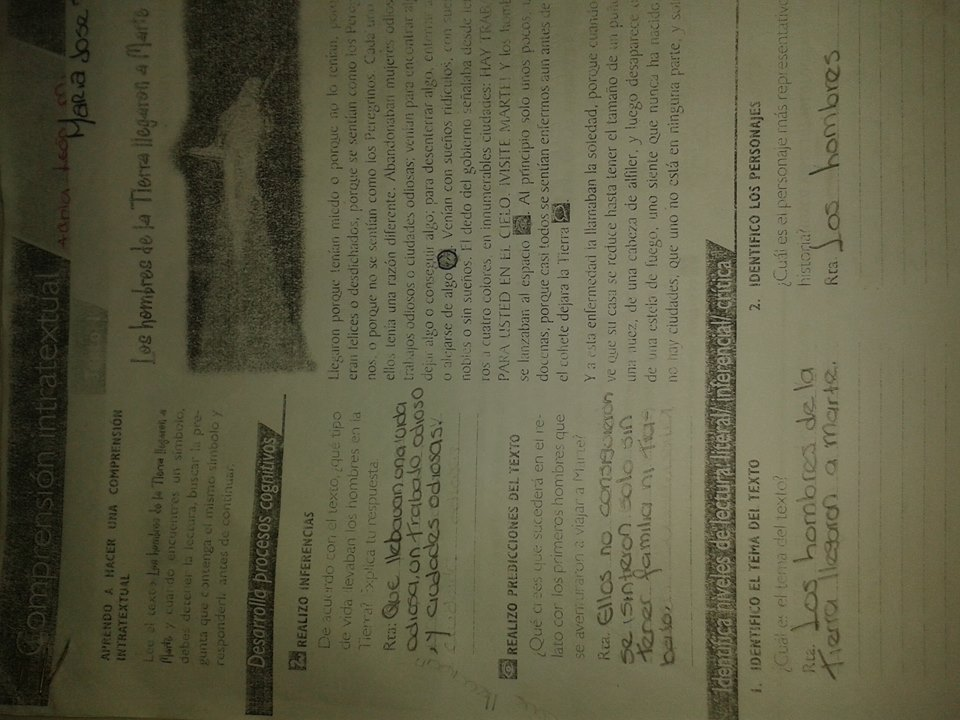 Comprensión intratextual
Maria Jose
APRENDO A HACER UNA COMPRENSIÓN
INTRATEXTUAL
Lee el texto Los hombres de la Tierra llegaron a
Marte y cuando encuentres un símbolo,
debes detener la lectura, buscar la pre-
gunta que contenga el mismo símbolo y
responderl, antes de continuar.
Desarrolla procesos cognitivos
2. REALIZO INFERENCIAS
De acuerdo con el texto, ¿qué tipo
de vida llevaban los hombres en la
Tierra? Explica tu respuesta
Rta. Que llebavan una vida
odiosa, un trabalo odioso
y ciudades odiosas.
REALIZO PREDICCIONES DEL TEXTO
¿Qué crees que sucederá en el re-
lato con los primeros hombres que
se aventuraron a viajar a Marte?
Rta. Ellos no consiguieron
se sintieron solo sin
tener familia ni tra-
bajo.
Los hombres de la Tierra llegaron a Marte
Llegaron porque tenían miedo o porque no lo tenían, porque
eran felices o desdichados, porque se sentían como los Peregri
nos, o porque no se sentían como los Peregrinos. Cada uno
ellos tenía una razón diferente. Abandonaban mujeres odiosas
trabajos odiosos o ciudades odiosas; venían para encontrar algo
dejar algo o conseguir algo; para desenterrar algo, enterrar a
o alejarse de algo. Venían con sueños ridículos, con sue
nobles o sin sueños. El dedo del gobierno señalaba desde let
ros a cuatro colores, en innumerables ciudades: HAY TRABA
PARA USTED EN EL CIELO. ¡VISITE MARTE! Y los homb
se lanzaban al espacio. Al principio sólo unos pocos, u
docenas, porque casi todos se sentían enfermos aun antes de
el cohete dejara la Tierra
Y a esta enfermedad la llamaban la soledad, porque cuando
ve que su casa se reduce hasta tener el tamaño de un puñ
una nuez, de una cabeza de alfiler, y luego desaparece
de una estela de fuego, uno siente que nunca ha nacido
no hay ciudades, que uno no está en ninguna parte, y sol
Identifica niveles de lectura literal/ inferencial/ crítica
1. IDENTIFICO EL TEMA DEL TEXTO
¿Cuál es el tema del texto?
Rta. Los hombres de la
tierra llegaron a marte.
2. IDENTIFICO LOS PERSONAJES
¿Cuál es el personaje más representativo
historia?
Rta Los hombres